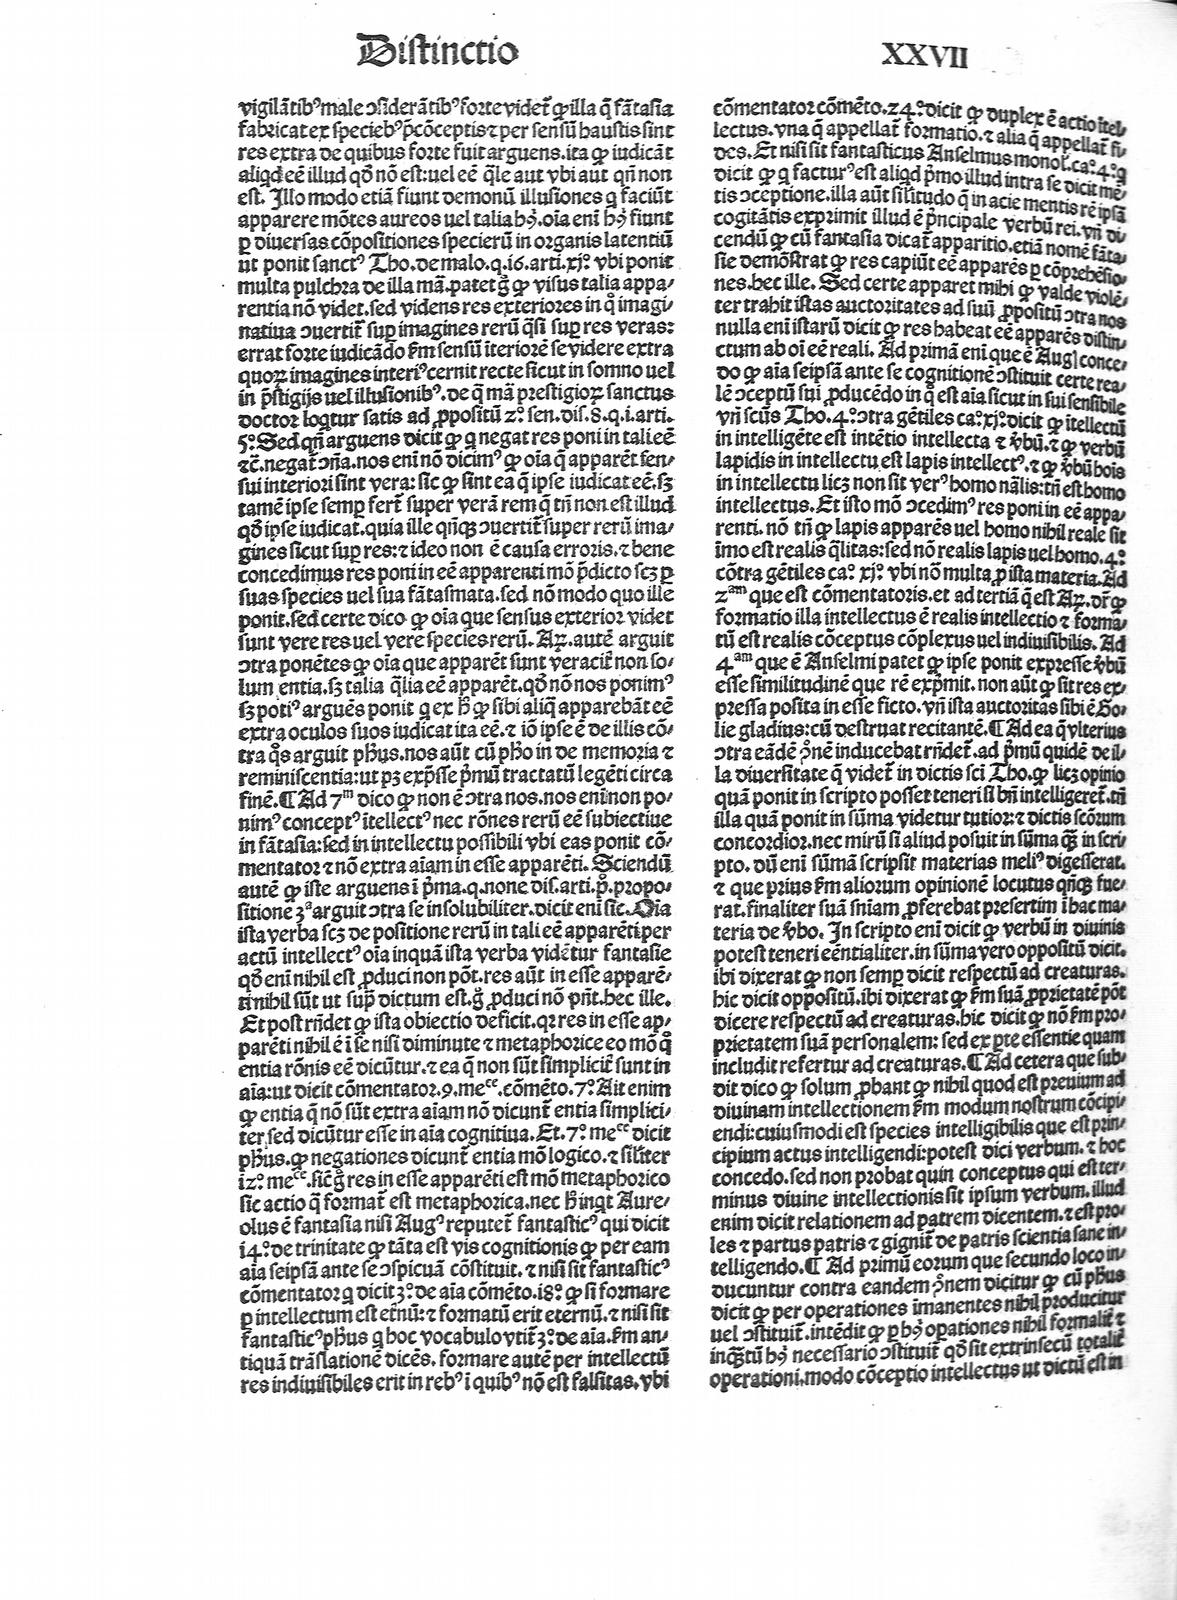 Distinctio
XXVII
vigilātibꝰ male ↄsiderātibꝰ forte videt᷑ ꝙ illa q̄ fātasia
fabricat ex speciebꝰ p̄cōceptis ⁊ per sensū haustis sint
res extra de quibus forte fuit arguens. ita ꝙ iudicāt
aliqd eē illud qd̄ nō est: uel eē q̄le aut vbi aut qn̄ non
est. Illo modo etiā fiunt demonū illusiones q faciūt
apparere mōtes aureos uel talia hꝰ. oīa eni hꝰ fiunt
ꝑ diuersas cōpositiones specierū in organis latentiū
ut ponit sanctꝰ Tho. de malo. q. 16. arti. xj.° vbi ponit
multa pulchra de illa mā. patet g̊ ꝙ visus talia appa⸗
rentia nō videt. sed videns res exteriores in q̊ imagi⸗
natiua ↄuertit᷑ suꝑ imagines rerū q̄si suꝑ res veras:
errat forte iudicādo ẜm sensū īteriorē se videre extra
quoꝝ imagines interiꝰ cernit recte sicut in somno uel
in p̄stigijs uel illusionibꝰ. de q̄ mā prestigioꝝ sanctus
doctor loqtur satis ad ꝓpositū 2.° sen. dis. 8. q. i. arti.
5.° Sed qn̄ arguens dicit ꝙ q negat res poni in tali eē
⁊c̄. negat᷑ ↄn̄a. nos eni nō dicimꝰ ꝙ oīa q̄ apparēt sen⸗
sui interiori sint vera: sic ꝙ sint ea q̄ ipse iudicat eē. sꝫ
tamē ipse semꝑ fert᷑ super verā rem q̄ tn̄ non est illud
qd̄ ipse iudicat. quia ille qn̄qꝫ ↄuertit᷑ super rerū ima⸗
gines sicut suꝑ res: ⁊ ideo non ē causa erroris. ⁊ bene
concedimus res poni in eē apparenti mō p̄dicto scꝫ ꝑ
suas species uel sua fātasmata. sed nō modo quo ille
ponit. sed certe dico ꝙ oīa que sensus exterior videt
sunt vere res uel vere species rerū. Aꝝ. autē arguit
ↄtra ponētes ꝙ oīa que apparēt sunt veraciť non so⸗
lum entia. sꝫ talia q̄lia eē apparēt. qd̄ nō nos ponimꝰ
sꝫ potiꝰ arguēs ponit q ex hͦ ꝙ sibi aliq̄ apparebāt eē
extra oculos suos iudicat ita eē. ⁊ iō ipse ē de illis cō⸗
tra q̊s arguit ph̄us. nos aūt cū ph̄o in de memoria ⁊
reminiscentia: ut pꝫ exp̄sse p̄mū tractatū legēti circa
finē. ¶ Ad 7ᵐ dico ꝙ non ē ↄtra nos. nos eni non po⸗
nimꝰ conceptꝰ ītellectꝰ nec rōnes rerū eē subiectiue
in fātasia: sed in intellectu possibili vbi eas ponit cō⸗
mentator ⁊ nō extra aīam in esse apparēti. Sciendū
autē ꝙ iste arguens ī p̄ma. q. none dis. arti. p̊. propo⸗
sitione 3ª arguit ↄtra se insolubiliter. dicit eni sic. Oīa
ista verba scꝫ de positione rerū in tali eē apparēti per
actū intellectꝰ oīa inquā ista verba vidētur fantasie
qd̄ eni nihil est ꝓduci non pōt. res aūt in esse apparē⸗
ti nihil sūt ut supͣ dictum est. g̊ ꝓduci nō pn̄t. hec ille.
Et post rn̄det ꝙ ista obiectio deficit. qꝛ res in esse ap⸗
parēti nihil ē ī se nisi diminute ⁊ metaphorice eo mō q̊
entia rōnis eē dicūtur. ⁊ ea q̄ non sūt simpliciť sunt in
aīa: ut dicit cōmentator. 9. meᶜᵉ. cōmēto. 7.° Ait enim
ꝙ entia q̄ nō sūt extra aīam nō dicunt᷑ entia simplici⸗
ter. sed dicūtur esse in aīa cognitiua. Et. 7.° meᶜᵉ dicit
ph̄us. ꝙ negationes dicunt᷑ entia mō logico. ⁊ siliter
i2.° meᶜᵉ. sic g̊ res in esse apparēti est mō metaphorico
sic actio q̄ format᷑ est metaphorica. nec hͦ inqt Aure⸗
olus ē fantasia nisi Augꝰ reputet᷑ fantasticꝰ qui dicit
i4.° de trinitate ꝙ tāta est vis cognitionis ꝙ per eam
aīa seipsā ante se ↄspicuā cōstituit. ⁊ nisi sit fantasticꝰ
cōmentator q dicit 3.° de aīa cōmēto. i8.° ꝙ si formare
ꝑ intellectum est et̄nū: ⁊ formatū erit eternū. ⁊ nisi sit
fantasticꝰ ph̄us q hoc vocabulo vtit᷑ 3.° de aīa. ẜm an⸗
tiquā trāslationē dicēs. formare autē per intellectū
res indiuisibiles erit in rebꝰ ī quibꝰ nō est falsitas. vbi
cōmentator cōmēto. 24.° dicit ꝙ duplex ē actio ītel⸗
lectus. vna q̄ appellat᷑ formatio. ⁊ alia q̄ appellat᷑ fi⸗
des. Et nisi sit fantasticus Anselmus monol. ca.° 4.° q
dicit ꝙ q facturꝰ est aliqd p̄mo illud intra se dicit mē⸗
tis ↄceptione. illa aūt silitudo q̄ in acie mentis rē ipsā
cogitātis exprimit illud ē p̄ncipale verbū rei. vn̄ di⸗
cendū ꝙ cū fantasia dicat᷑ apparitio. etiā nomē fāta⸗
sie demōstrat ꝙ res capiūt eē apparēs ꝑ cōprehēsio⸗
nes. hec ille. Sed certe apparet mihi ꝙ valde violē⸗
ter trahit istas auctoritates ad suū ꝓpositū ↄtra nos
nulla eni istarū dicit ꝙ res habeat eē apparēs distin⸗
ctum ab oī eē reali. Ad primā eni que ē Augꝰ conce⸗
do ꝙ aīa seipsā ante se cognitionē ↄstituit certe rea⸗
lē ↄceptū sui ꝓducēdo in q̊ est aīa sicut in sui sensibile
vn̄ scūs Tho. 4.° ↄtra gētiles ca.° xj.° dicit ꝙ ītellectū
in intelligēte est intētio intellecta ⁊ v̄bū. ⁊ ꝙ verbū
lapidis in intellectu est lapis intellectꝰ. ⁊ ꝙ v̄bū hois
in intellectu licꝫ non sit verꝰ homo nālis: tn̄ est homo
intellectus. Et isto mō ↄcedimꝰ res poni in eē appa⸗
renti. nō tn̄ ꝙ lapis apparēs uel homo nihil reale sit
īmo est realis q̄litas: sed nō realis lapis uel homo. 4.°
cōtra gētiles ca.° xj.° vbi nō multa ꝑ ista materia. Ad
2ᵃᵐ que est cōmentatoris. et ad tertiā q̄ est Aꝝ. dr̄ ꝙ
formatio illa intellectus ē realis intellectio ⁊ forma⸗
tū est realis cōceptus cōplexus uel indiuisibilis. Ad
4ᵃᵐ que ē Anselmi patet ꝙ ipse ponit expresse v̄bū
esse similitudinē que rē exp̄mit. non aūt ꝙ sit res ex⸗
pressa posita in esse ficto. vn̄ ista auctoritas sibi ē Go⸗
lie gladius: cū destruat recitantē. ¶ Ad ea q̄ vlterius
ↄtra eādē ꝯnē inducebat rn̄det᷑. ad p̄mū quidē de il⸗
la diuersitate q̄ videt᷑ in dictis scī Tho. ꝙ licꝫ opinio
quā ponit in scripto posset teneri si bn̄ intelligeret᷑. tn̄
illa quā ponit in sūma videtur tutior: ⁊ dictis scōrum
concordior. nec mirū si aliud posuit in sūma qꝫ in scri⸗
pto. dū eni sūmā scripsit materias meliꝰ digesserat.
⁊ que prius ẜm aliorum opinionē locutus qn̄qꝫ fue⸗
rat. finaliter suā sn̄iam ꝓferebat presertim ī hac ma⸗
teria de v̄bo. In scripto eni dicit ꝙ verbū in diuinis
potest teneri eēntialiter. in sūma vero oppositū dicit.
ibi dixerat ꝙ non semꝑ dicit respectū ad creaturas.
hic dicit oppositū. ibi dixerat ꝙ ẜm suā ꝓprietatē pōt
dicere respectū ad creaturas. hic dicit ꝙ nō ẜm pro⸗
prietatem suā personalem: sed ex pte essentie quam
includit refertur ad creaturas. ¶ Ad cetera que sub⸗
dit dico ꝙ solum ꝓbant ꝙ nihil quod est preuium ad
diuinam intellectionem ẜm modum nostrum cōcipi⸗
endi: cuiusmodi est species intelligibilis que est prin⸗
cipium actus intelligendi: potest dici verbum. ⁊ hoc
concedo. sed non probat quin conceptus qui est ter⸗
minus diuine intellectionis sit ipsum verbum. illud
enim dicit relationem ad patrem dicentem. ⁊ est pro⸗
les ⁊ partus patris ⁊ gignit᷑ de patris scientia sane in⸗
telligendo. ¶ Ad primū eorum que secundo loco in⸗
ducuntur contra eandem ꝯnem dicitur ꝙ cū ph̄us
dicit ꝙ per operationes īmanentes nihil producitur
uel ↄstituit᷑. intēdit ꝙ ꝑ hꝰ oꝑationes nihil formaliť ⁊
inqꝫtū hꝰ necessario ↄstituit᷑ qd̄ sit extrinsecū totaliť
operationi. modo cōceptio intellectus ut dictū est in